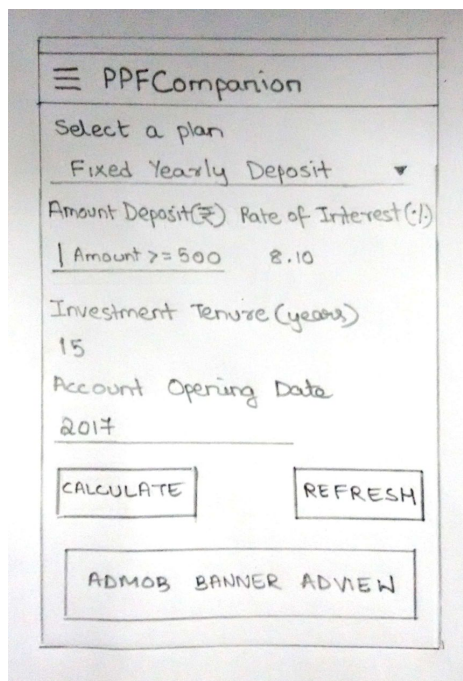 PPFCompanion
Select a plan
Fixed Yearly Deposit
Amount Deposit(₹) Rate of Interest(%)
Amount >= 500 8.10
Investment Tenure (years)
15
Account Opening Date
2017
CALCULATE REFRESH
ADMOB BANNER ADVIEW